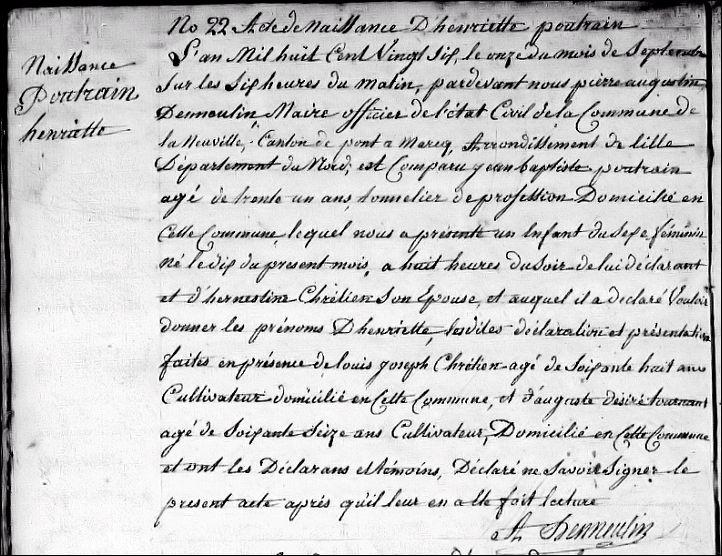 Naissance
Poutrain
henriette
No 22 Acte de Naissance D'henriette poutrain
L'an Mil huit Cent Vingt Six, le onze du mois de Septembre
Sur les Six heures du matin, pardevant nous pierre augustin
Denneulin Maire officier de l'état Civil de la Commune de
la Neuville, Canton de pont a Marcq Arrondissement de lille
Département du Nord, est Comparu jean baptiste poutrain
agé de trente un ans, tonnelier de profession Domicilié en
Cette Commune, lequel nous a présenté un Enfant du Sexe féminin
né le dix du present mois, a huit heures du Soir de lui déclarant
et d'hernestine Chrétien Son Epouse, et auquel il a declaré Vouloir
donner les prénoms D'henriette, les dites déclaration et présentation
faites en présence de louis joseph Chrétien agé de Soixante huit ans
Cultivateur domicilié en Cette Commune, et d'auguste désiré tournant
agé de Soixante Seize ans Cultivateur, Domicilié en Cette Commune
et ont les Déclarans et témoins, Déclaré ne Savoir Signer le
present acte aprés qu'il leur en a ete fait lecture
A Denneulin